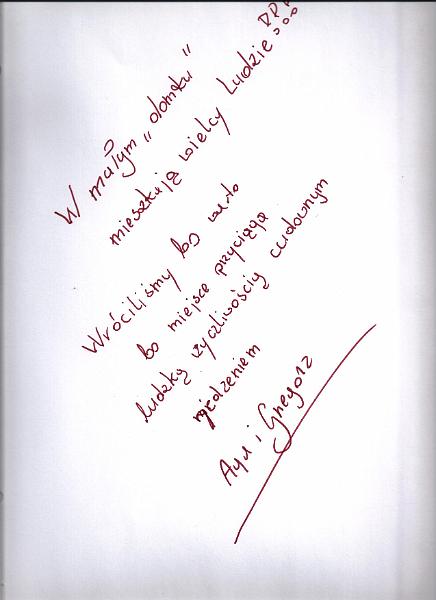 W małym „domku”
mieszkają wielcy ludzie!!!
Wróciliśmy bo warto
bo miejsce przyciąga
ludzką życzliwością cudownym
jedzeniem
i Grzegorz